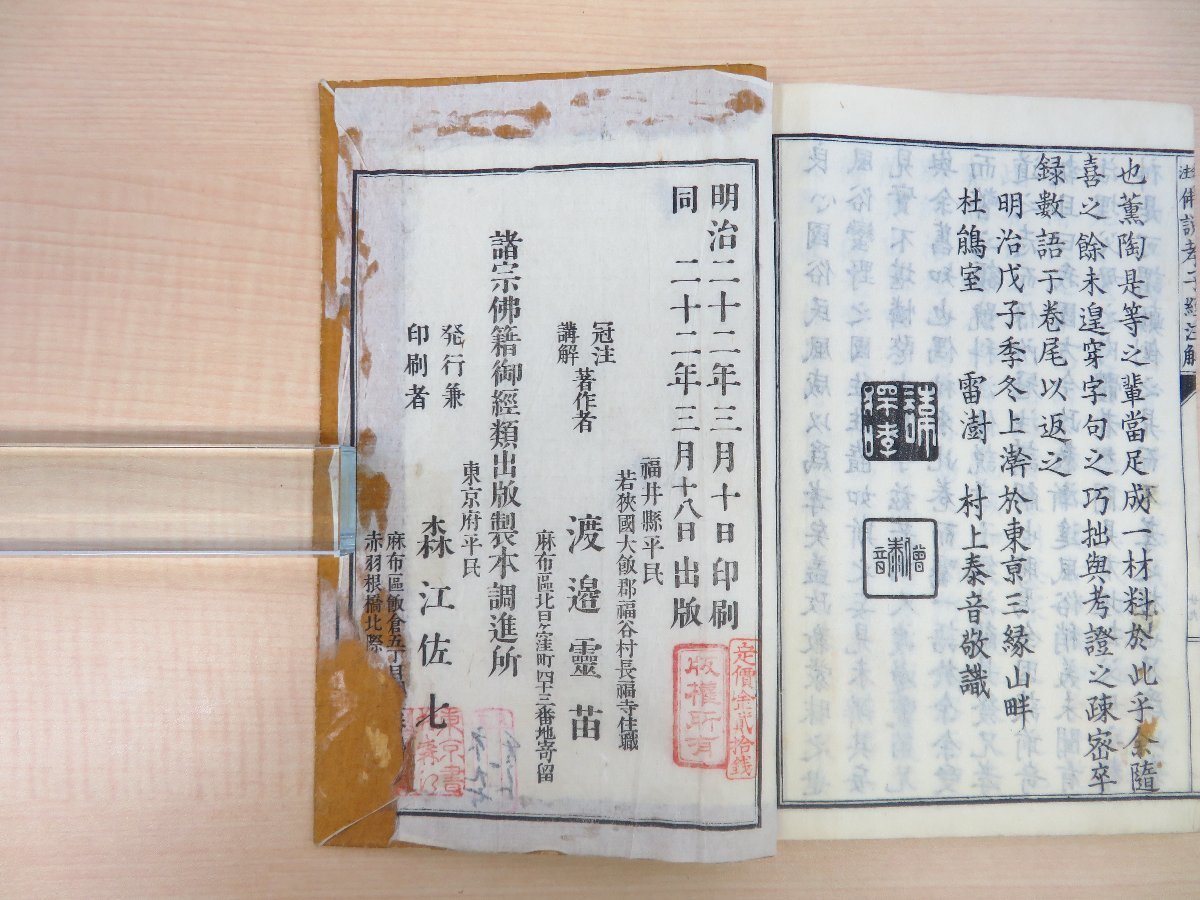 也薫陶是等之輩當足成一材料於此乎余隨
喜之餘未遑穿字句之巧拙與考證之疎密卒
録數語于卷尾以返之
明治戊子季冬上澣於東京三縁山畔
杜鵑室 雷澍 村上泰音敬識
明治二十二年三月十日印刷
同 二十二年三月十八日出版
定價金貳拾銭
版權所有
福井縣平民
若狹國大飯郡福谷村長福寺住職
冠注
講解
著作者
渡邉靈苗
麻布區北日久窪町四十三番地寄留
諸宗佛籍御經類出版製本調進所
東京府平民
発行兼
印刷者
森江佐七
麻布區飯倉五丁目
赤羽根橋北際